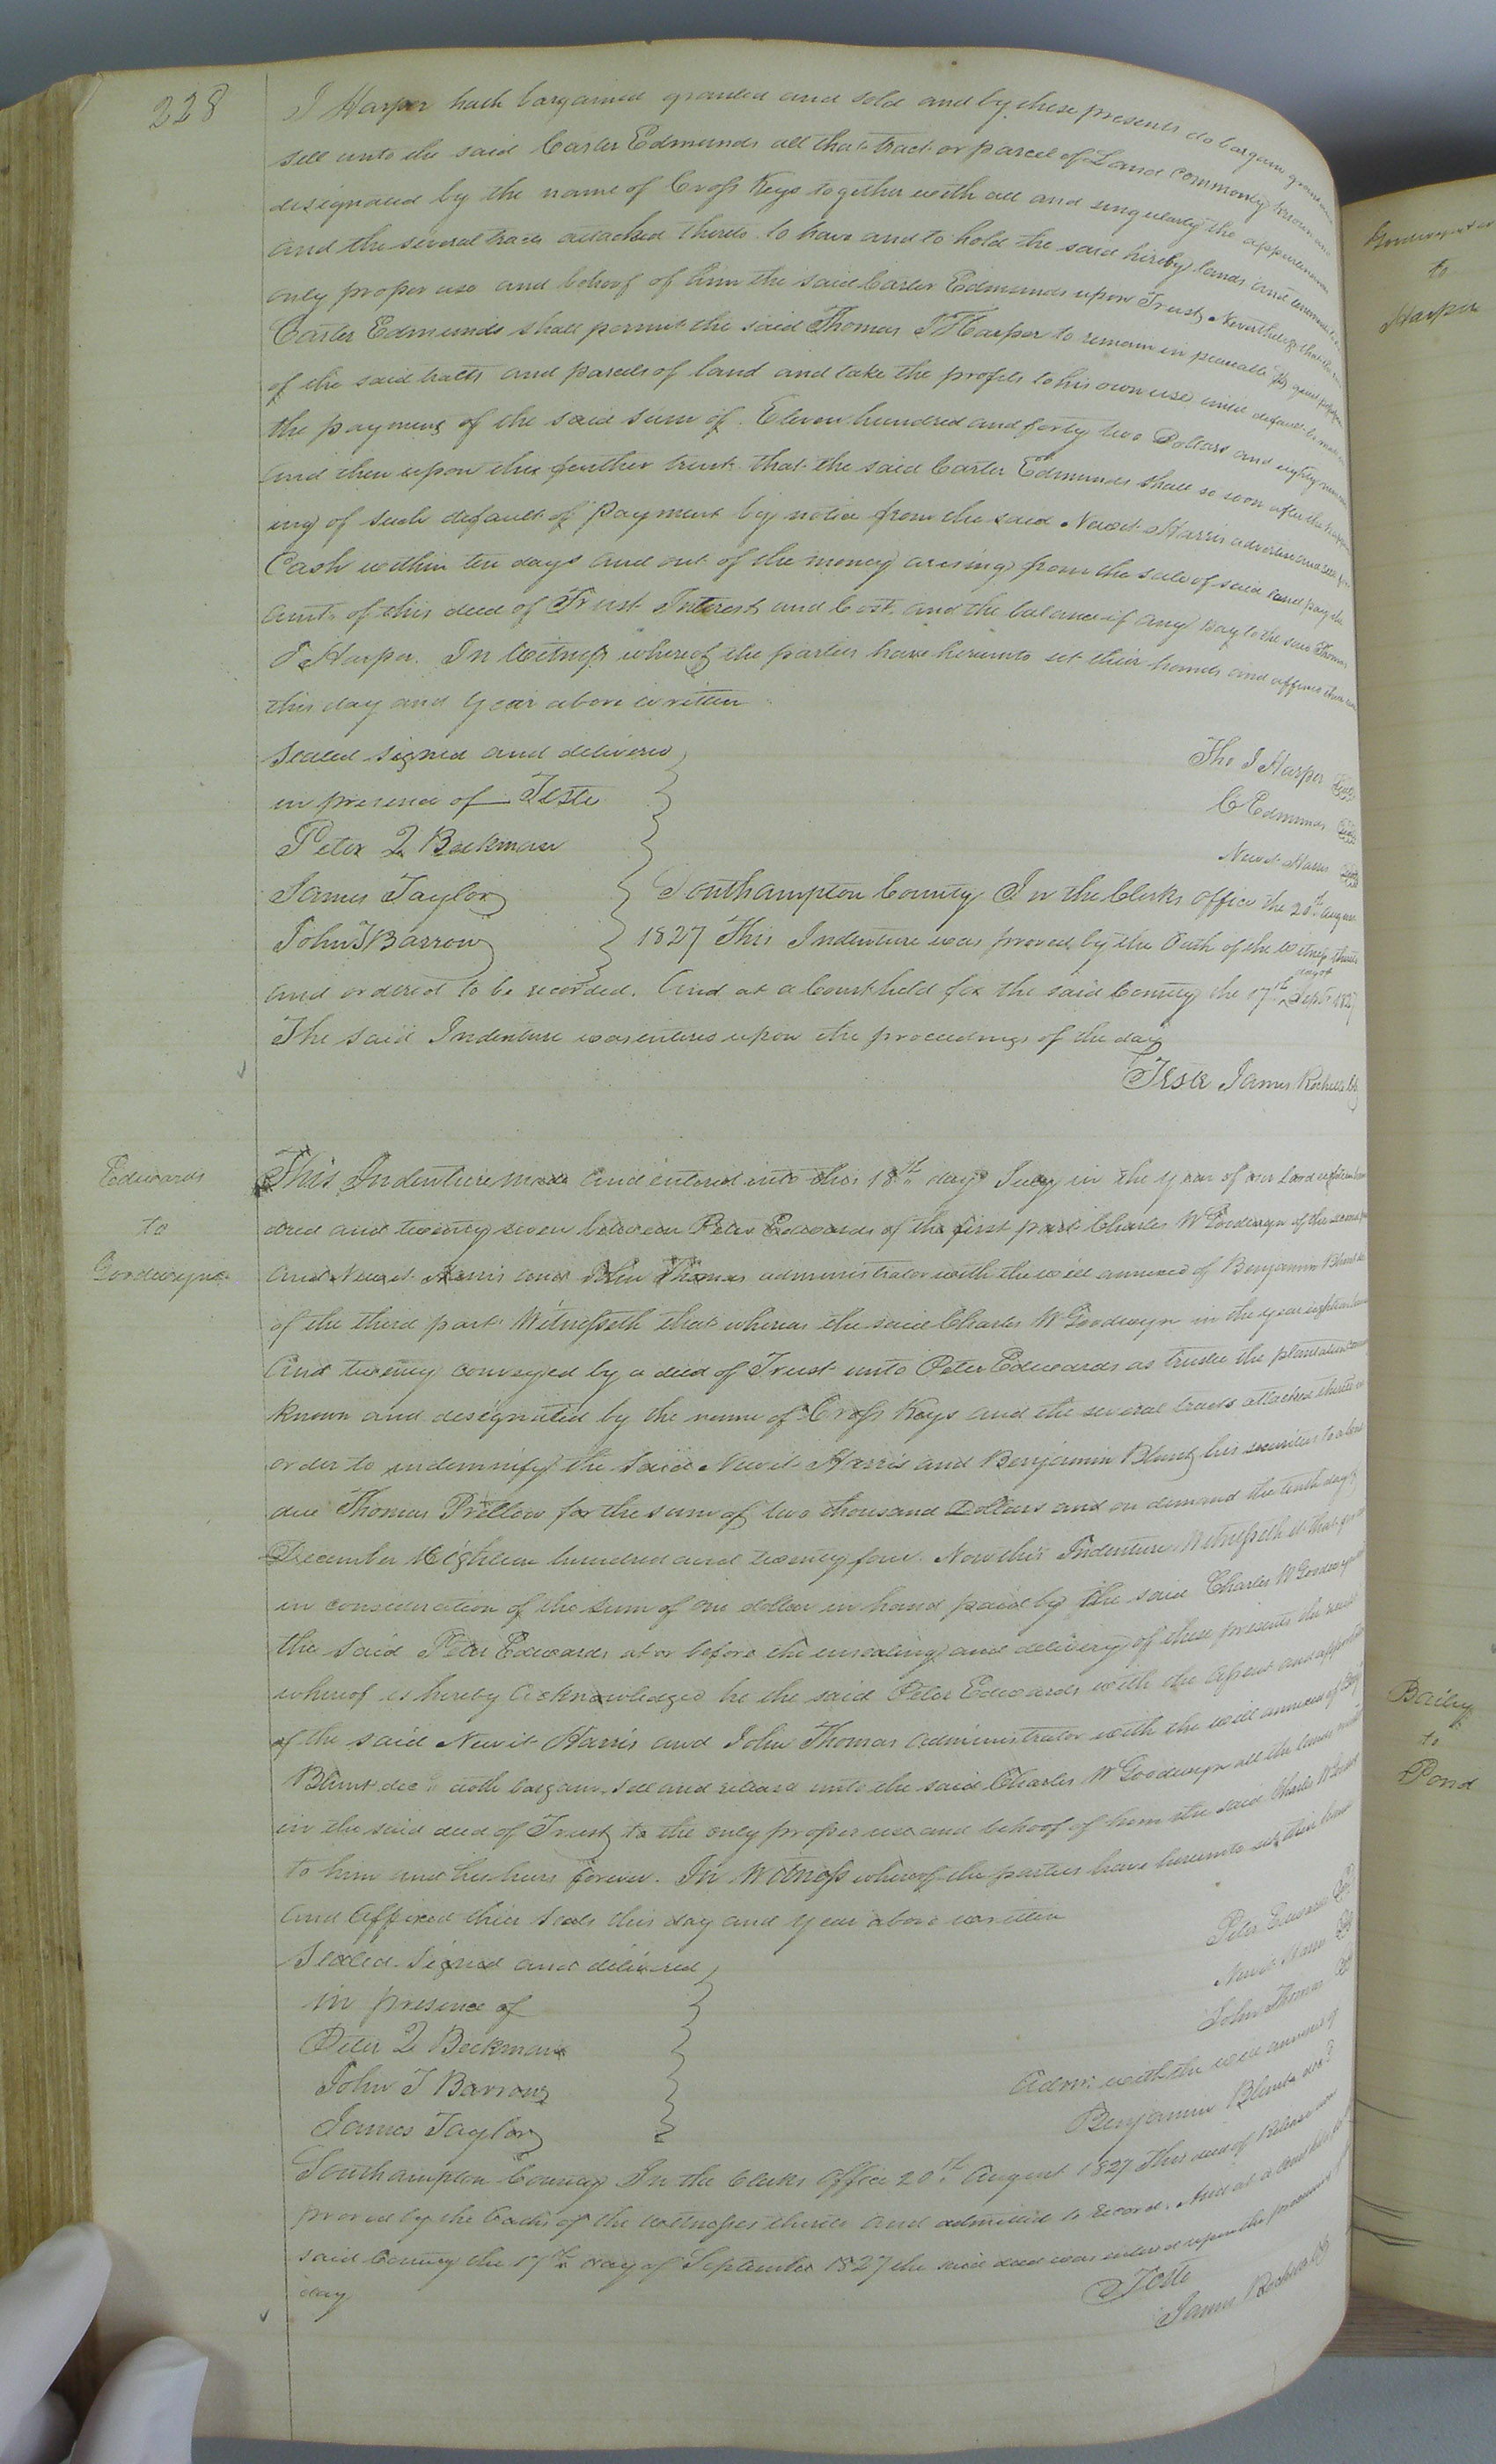 228
T Harper hath bargained granted and sold and by these presents do bargain grant and
sell unto the said Carter Edmunds all that tract or parcel of Land commonly known and
designated by the name of Cross Keys together with all and singularly the appurtenances
and the several tracts attached thereto to have and to hold the said hireby lands and tenements
only proper use and behoof of him the said Carter Edmunds upon Trust Nevertheless that the said
Carter Edmunds shall permit the said Thomas T Harper to remain in peaceable & quiet possession
of the said tracts and parcels of land and take the profits to his own use until default be made in
the payment of the said sum of Eleven hundred and forty two Dollars and eighty
and then upon this further trust that the said Carter Edmunds shall so soon after the happen
ing of such default of Payment by notice from the said Newit Harris advertise and sell for
Cash within ten days and out of the money arising from the sale of said land pay the
amt. of this deed of Trust Interest and Cost. and the balance if any pay to the said Thomas
T Harper. In Witness whereof the parties have hereunto set their hands and affixed their seals
this day and year above written
Sealed signed and delivered
in presence of Teste
Peter Q Beckman
James Taylor
John T Barrow
Tho T Harper Seal
C Edmunds Seal
Newit Harris Seal
Southampton County In the Clerks office the 20th August
1827 This Indenture was proved by the Oath of the witness thereto
and ordered to be recorded. And at a Court held for the said County the 17th day of Septr. 1827
The said Indenture was entered upon the proceedings of the day
Teste James Rochelle Clk
Edwards
to
Goodwynn
This Indenture made and entered into this 18th day July in the year of our Lord eighteen hun
dred and twenty seven between Peter Edwards of the first part Charles W Goodwyn of the second part
and Newit Harris and John Thomas administrator with the will annexed of Benjamin Blunt
of the third part Witnesseth that whereas the said Charles W Goodwyn in the year eighteen hundred
And twenty conveyed by a deed of Trust unto Peter Edwards as trustee the plantation
known and designated by the name of Cross Keys and the several tracts attached thereto in
order to indemnify the said Newit Harris and Benjamin Blunt his securities to a bond
due Thomas Pretlow for the sum of two thousand Dollars and on demand the tenth day of
December Eighteen hundred and twenty four. Now this Indenture Witnesseth that for &
in consideration of the sum of one dollar in hand paid by the said Charles W Goodwyn
the said Peter Edwards at or before the ensealing and delivery of these presents the receipt
whereof is hereby acknowledged he the said Peter Edwards with the assent and approbation
of the said Newit Harris and John Thomas administrator with the will annexed of Benj
Blunt decd. doth bargain sell and release unto the said Charles W Goodwyn all the lands
in the said deed of Trust to the only proper use and behoof of him the said Charles W Goodwyn
to him and his heirs forever. In Witness whereof the parties have hereunto set their hands
and affixed their seals this day and year above written
Sealed Signed and delivered
in presence of
Peter Q Beckman
John T Barrow
James Taylor
Peter Edwards Seal
Newit Harris Seal
John Thomas Seal
Adm. with the will annexed of
Benjamin Blunt decd
Southampton County In the Clerks Office 20th August 1827 This deed of Release was
proved by the Oaths of the witnesses thereto and admitted to record. And at a Court held for
said County the 17th day of September 1827 the said deed was entered upon the proceedings of
day
Teste
James Rochelle Clk
to
Harper
Bailey
to
Pond